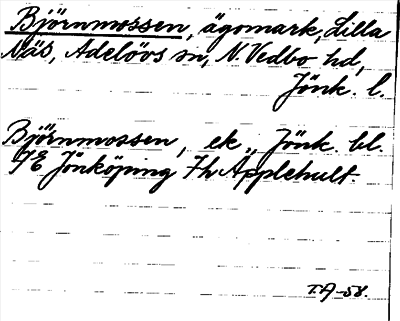 Björnmossen, ägomark, Lilla
Näs, Adelövs sn, N. Vedbo hd,
Jönk. l.
Björnmossen, ek „ Jönk. bl.
7E Jönköping 7h Äpplehult.
T.A-58.